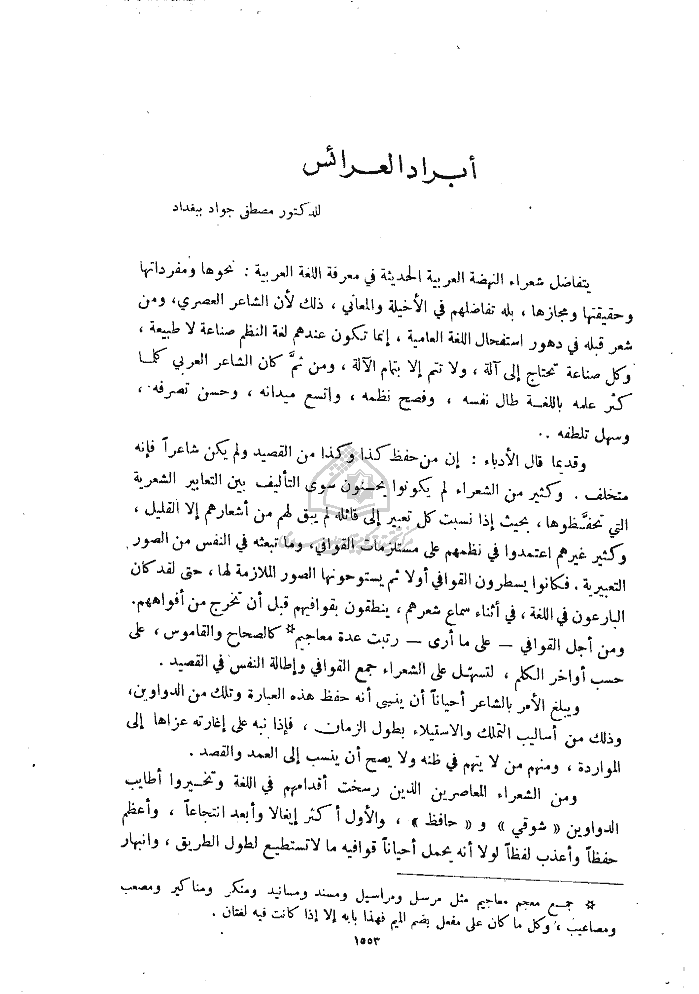 أبراد العرائس
للدكتور مصطفى جواد ببغداد
يتفاضل شعراء النهضة العربية الحديثة في معرفة اللغة العربية : نحوها ومفرداتها
وحقيقتها ومجازها ، بله تفاضلهم في الأخيلة والمعاني ، ذلك لأن الشاعر العصري، ومن
شعر قبله في دهور استفحال اللغة العامية ، إنما تكون عندهم لغة النظم صناعة لا طبيعة ،
وكل صناعة تحتاج إلى آلة ، ولا تتم إلا بتمام الآلة ، ومن ثمَّ كان الشاعر العربي كلما
كثر علمه باللغة طال نفسه ، وفصح نظمه ، واتسع ميدانه ، وحسن تصرفه ،
وسهل تلطفه ..
وقديما قال الأدباء : إن من حفظ كذا وكذا من القصيد ولم يكن شاعراً فإنه
متخلف . وكثير من الشعراء لم يكونوا يحسنون سوى التأليف بين التعابير الشعرية
التي تحفَّظوها ، بحيث إذا نسبت كل تعبير إلى قائله لم يبق لهم من أشعارهم إلا القليل ،
وكثير غيرهم اعتمدوا في نظمهم على مستلزمات القوافي، وما تبعثه في النفس من الصور
التعبيرية . فكانوا يسطرون القوافي أولا ثم يستوحونها الصور الملازمة لها ، حتى لقد كان
البارعون في اللغة ، في أثناء سماع شعرهم ، ينطقون بقوافيهم قبل أن تخرج من أفواههم.
ومن أجل القوافي — على ما أرى — رتبت عدة معاجيم* كالصحاح والقاموس ، على
حسب أواخر الكلم ، لتسهّل على الشعراء جمع القوافي وإطالة النفس في القصيد .
ويبلغ الأمر بالشاعر أحياناً أن ينسى أنه حفظ هذه العبارة وتلك من الدواوين،
وذلك من أساليب التملك والاستيلاء بطول الزمان ، فإذا نبه على إغارته عزاها إلى
المواردة ، ومنهم من لا يتهم في ظنه ولا يصح أن ينسب إلى العمد والقصد .
ومن الشعراء المعاصرين الذين رسخت أقدامهم في اللغة وتخيروا أطايب
الدواوين « شوقي » و « حافظ » ، والأول أكثر إيغالا وأبعد انتجاعاً ، وأعظم
حفظاً وأعذب لفظاً لولا أنه يحمل أحياناً قوافيه ما لا تستطيع لطول الطريق ، وانبهار
* جمع معجم معاجيم مثل مرسل ومراسيل ومسند ومسانيد ومنكر ومناكير ومصعب
ومصاعيب ، وكل ما كان على مفعل بضم الميم فهذا بابه إلا إذا كانت فيه لغتان .
١٥٥٣